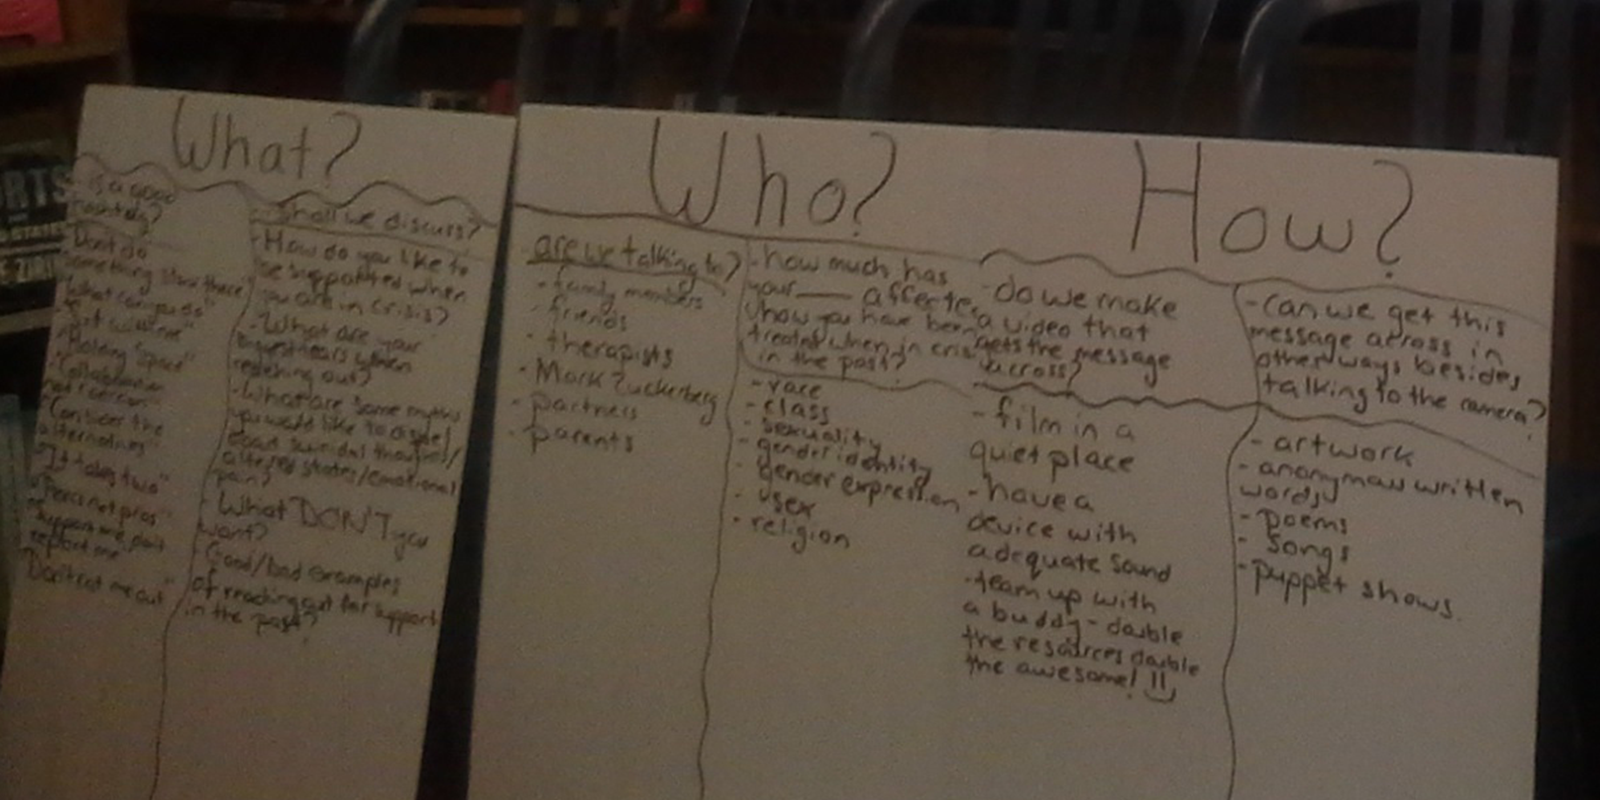 What?
is a good
hashtag?
"Don't do
something
"What can you do"
"Holding Space"
"Collaboration
not coercion"
"Consider the
alternatives"
"It takes two"
"Peers not pros"
"Support me don't
report me"
"Don't cut me out"
- Shall we discuss?
- How do you like to
be supported when
you are in crisis?
- What are your
biggest fears when
reaching out?
- What are some myths
you would like to dispel
about suicidal thoughts/
altered states/emotional
pain?
- What DON'T you
want?
- Good/bad examples
of reaching out for support
in the past?
Who?
are we talking to?
- family members
- friends
- therapists
- Mark Zuckerberg
- partners
- parents
- how much has
your ___ affected
how you have been
treated when in crisis
in the past?
- race
- class
- sexuality
- gender identity
- gender expression
- sex
- religion
How?
- do we make
a video that
gets the message
across?
- film in a
quiet place
- have a
device with
adequate sound
- team up with
a buddy - double
the resources double
the awesome! !!
- can we get this
message across in
other ways besides
talking to the camera?
- artwork
- anonymous written
words
- poems
- songs
- puppet shows.